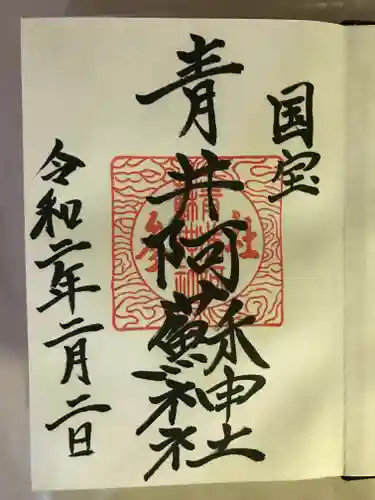 国宝
青井阿蘇神社
令和二年二月二日